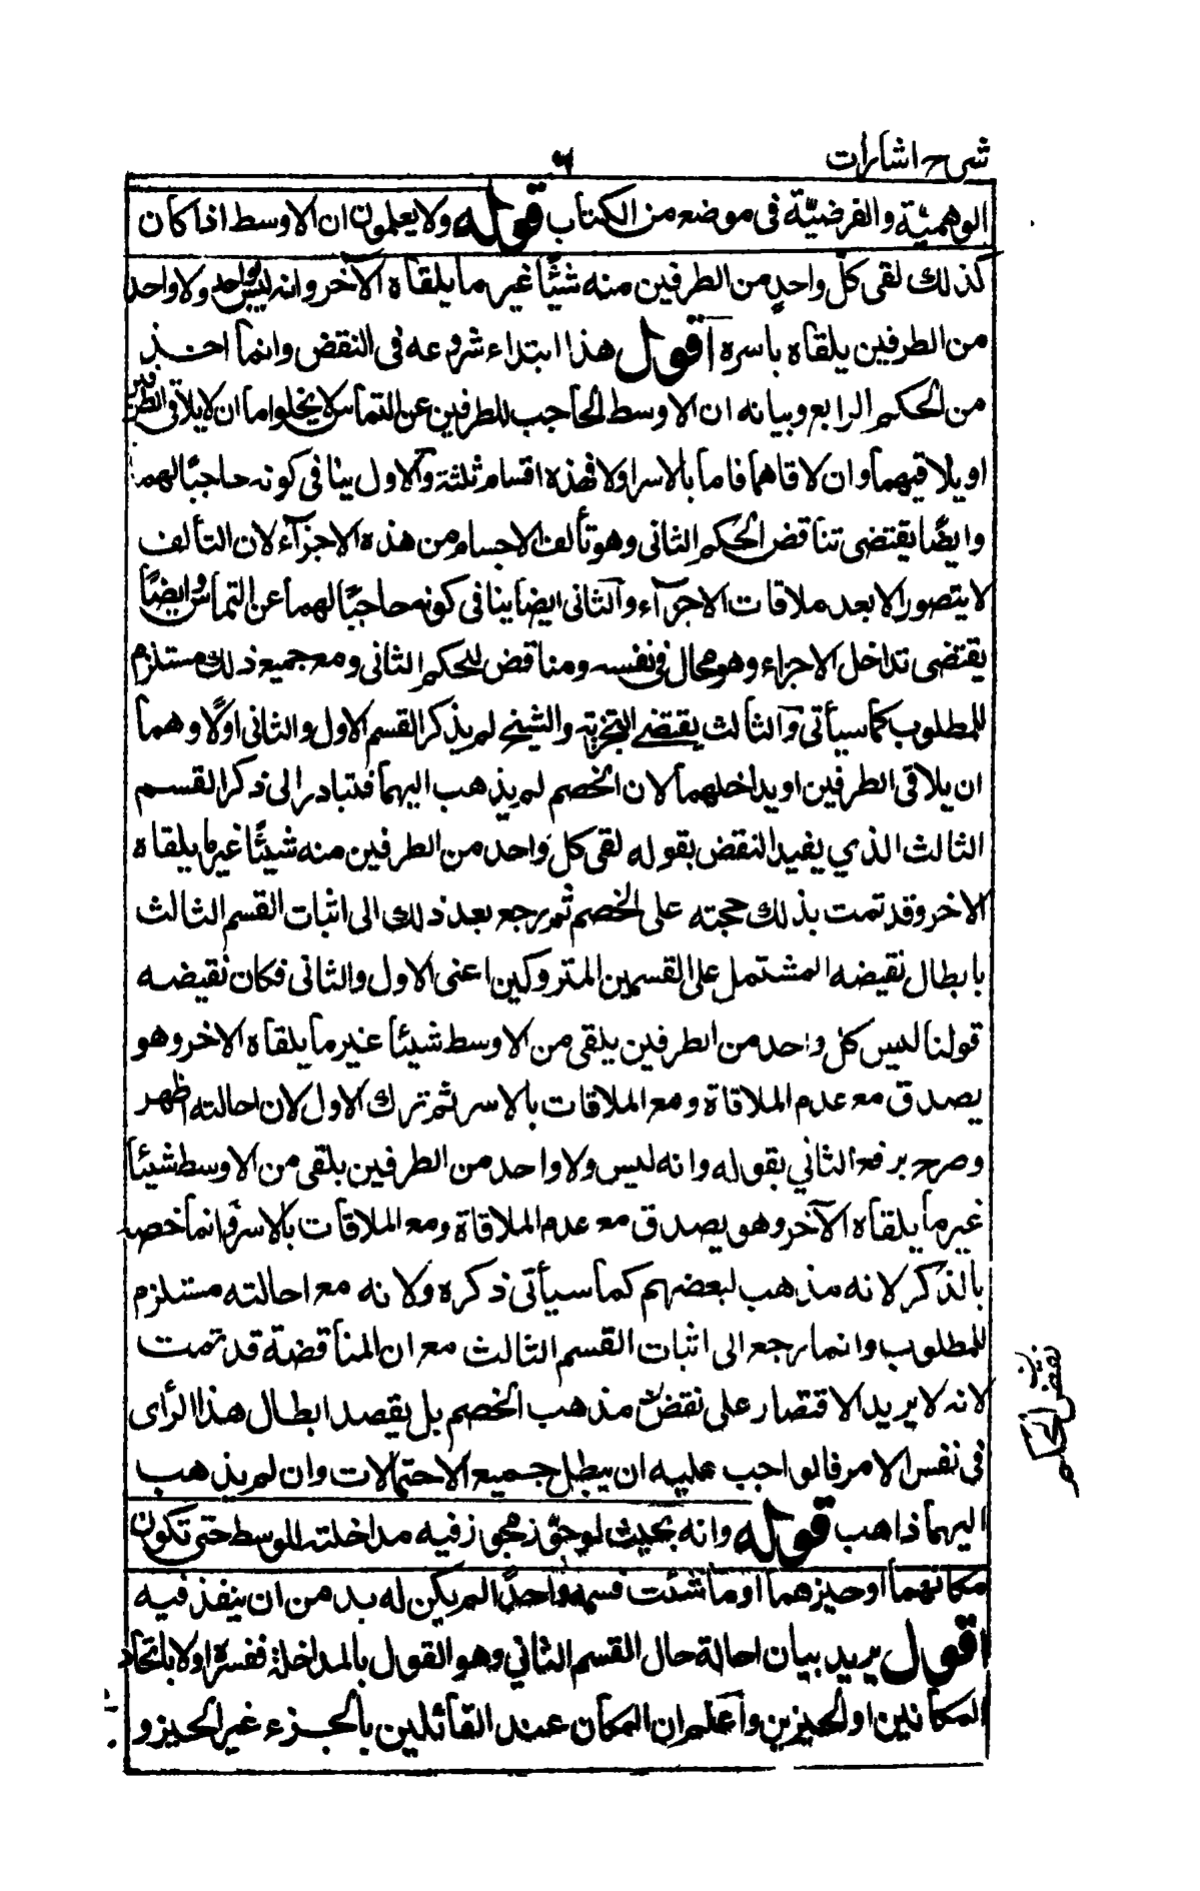 شرح اشارات
٥٦
الوهميّة والفرضيّة في موضعه من الكتاب قوله ولا يعلمون ان الاوسط اذا كان
كذلك لقى كل واحدٍ من الطرفين منه شئًا غير ما يلقاه الآخر وانه ليس ولا واحد
من الطرفين يلقاه باسره اقول هذا ابتداء شروعه فى النقض وانما اخذ
من الحكم الرابع وبيانه ان الاوسط الحاجب للطرفين عن التماس لا يخلوا ما ان لا يلاقى الطرفين
او يلاقيهما وان لاقاهما فاما بالاسر اولا فهذه اقسام ثلثة والاول ينافى كونه حاجبًا لهما
وايضًا يقتضى تناقض الحكم الثانى وهو تألف الاجسام من هذه الاجزآء لان التألف
لا يتصور الا بعد ملاقات الاجزآء والثانى ايضا ينافى كونه حاجبًا لهما عن التماس وايضًا
يقتضى تداخل الاجزاء وهو محال فى نفسه ومناقض للحكم الثانى ومع جميع ذلك مستلزم
للمطلوب كما سيأتى والثالث يقتضى التجزية والشيخ لم يذكر القسم الاول والثانى اولًا وهما
ان يلاقى الطرفين او يداخلهما لان الخصم لم يذهب اليهما فتبادر الى ذكر القسم
الثالث الذي يفيد النقض بقوله لقى كل واحد من الطرفين منه شيئًا غير ما يلقاه
الاخر وقد تمت بذلك حجته على الخصم ثم يرجع بعد ذلك الى اثبات القسم الثالث
بابطال نقيضه المشتمل على القسمين المتروكين اعنى الاول والثانى فكان نقيضه
قولنا ليس كل واحد من الطرفين يلقى من الاوسط شيئا غير ما يلقاه الاخر وهو
يصدق مع عدم الملاقاة ومع الملاقات بالاسر ثم ترك الاول لان احالته اظهر
وصرح برفع الثاني بقوله وانه ليس ولا واحد من الطرفين يلقى من الاوسط شيئا
غير ما يلقاه الآخر وهو يصدق مع عدم الملاقاة ومع الملاقات بالاسر وانما خصه
بالذكر لانه مذهب لبعضهم كما سيأتى ذكره ولانه مع احالته مستلزم
للمطلوب وانما رجع الى اثبات القسم الثالث مع ان المناقضة قد تمت
لانه لا يريد الاقتصار على نقض مذهب الخصم بل يقصد ابطال هذا الرأى
فى نفس الامر فالواجب عليه ان يبطل جميع الاحتمالات وان لم يذهب
اليهما ذاهب قوله وانه بحيث لو جوّز مجوز فيه مداخلته للوسط حتى تكون
مكانهما او حيزهما او ما شئت فسمه واحدًا لم يكن له بد من ان ينفذ فيه
اقول يريد بيان احالة حال القسم الثاني وهو القول بالمداخلة ففسره اولا باتحاد
المكانين او الحيزين واعلم ان المكان عند القائلين بالجزء غير الحيز و